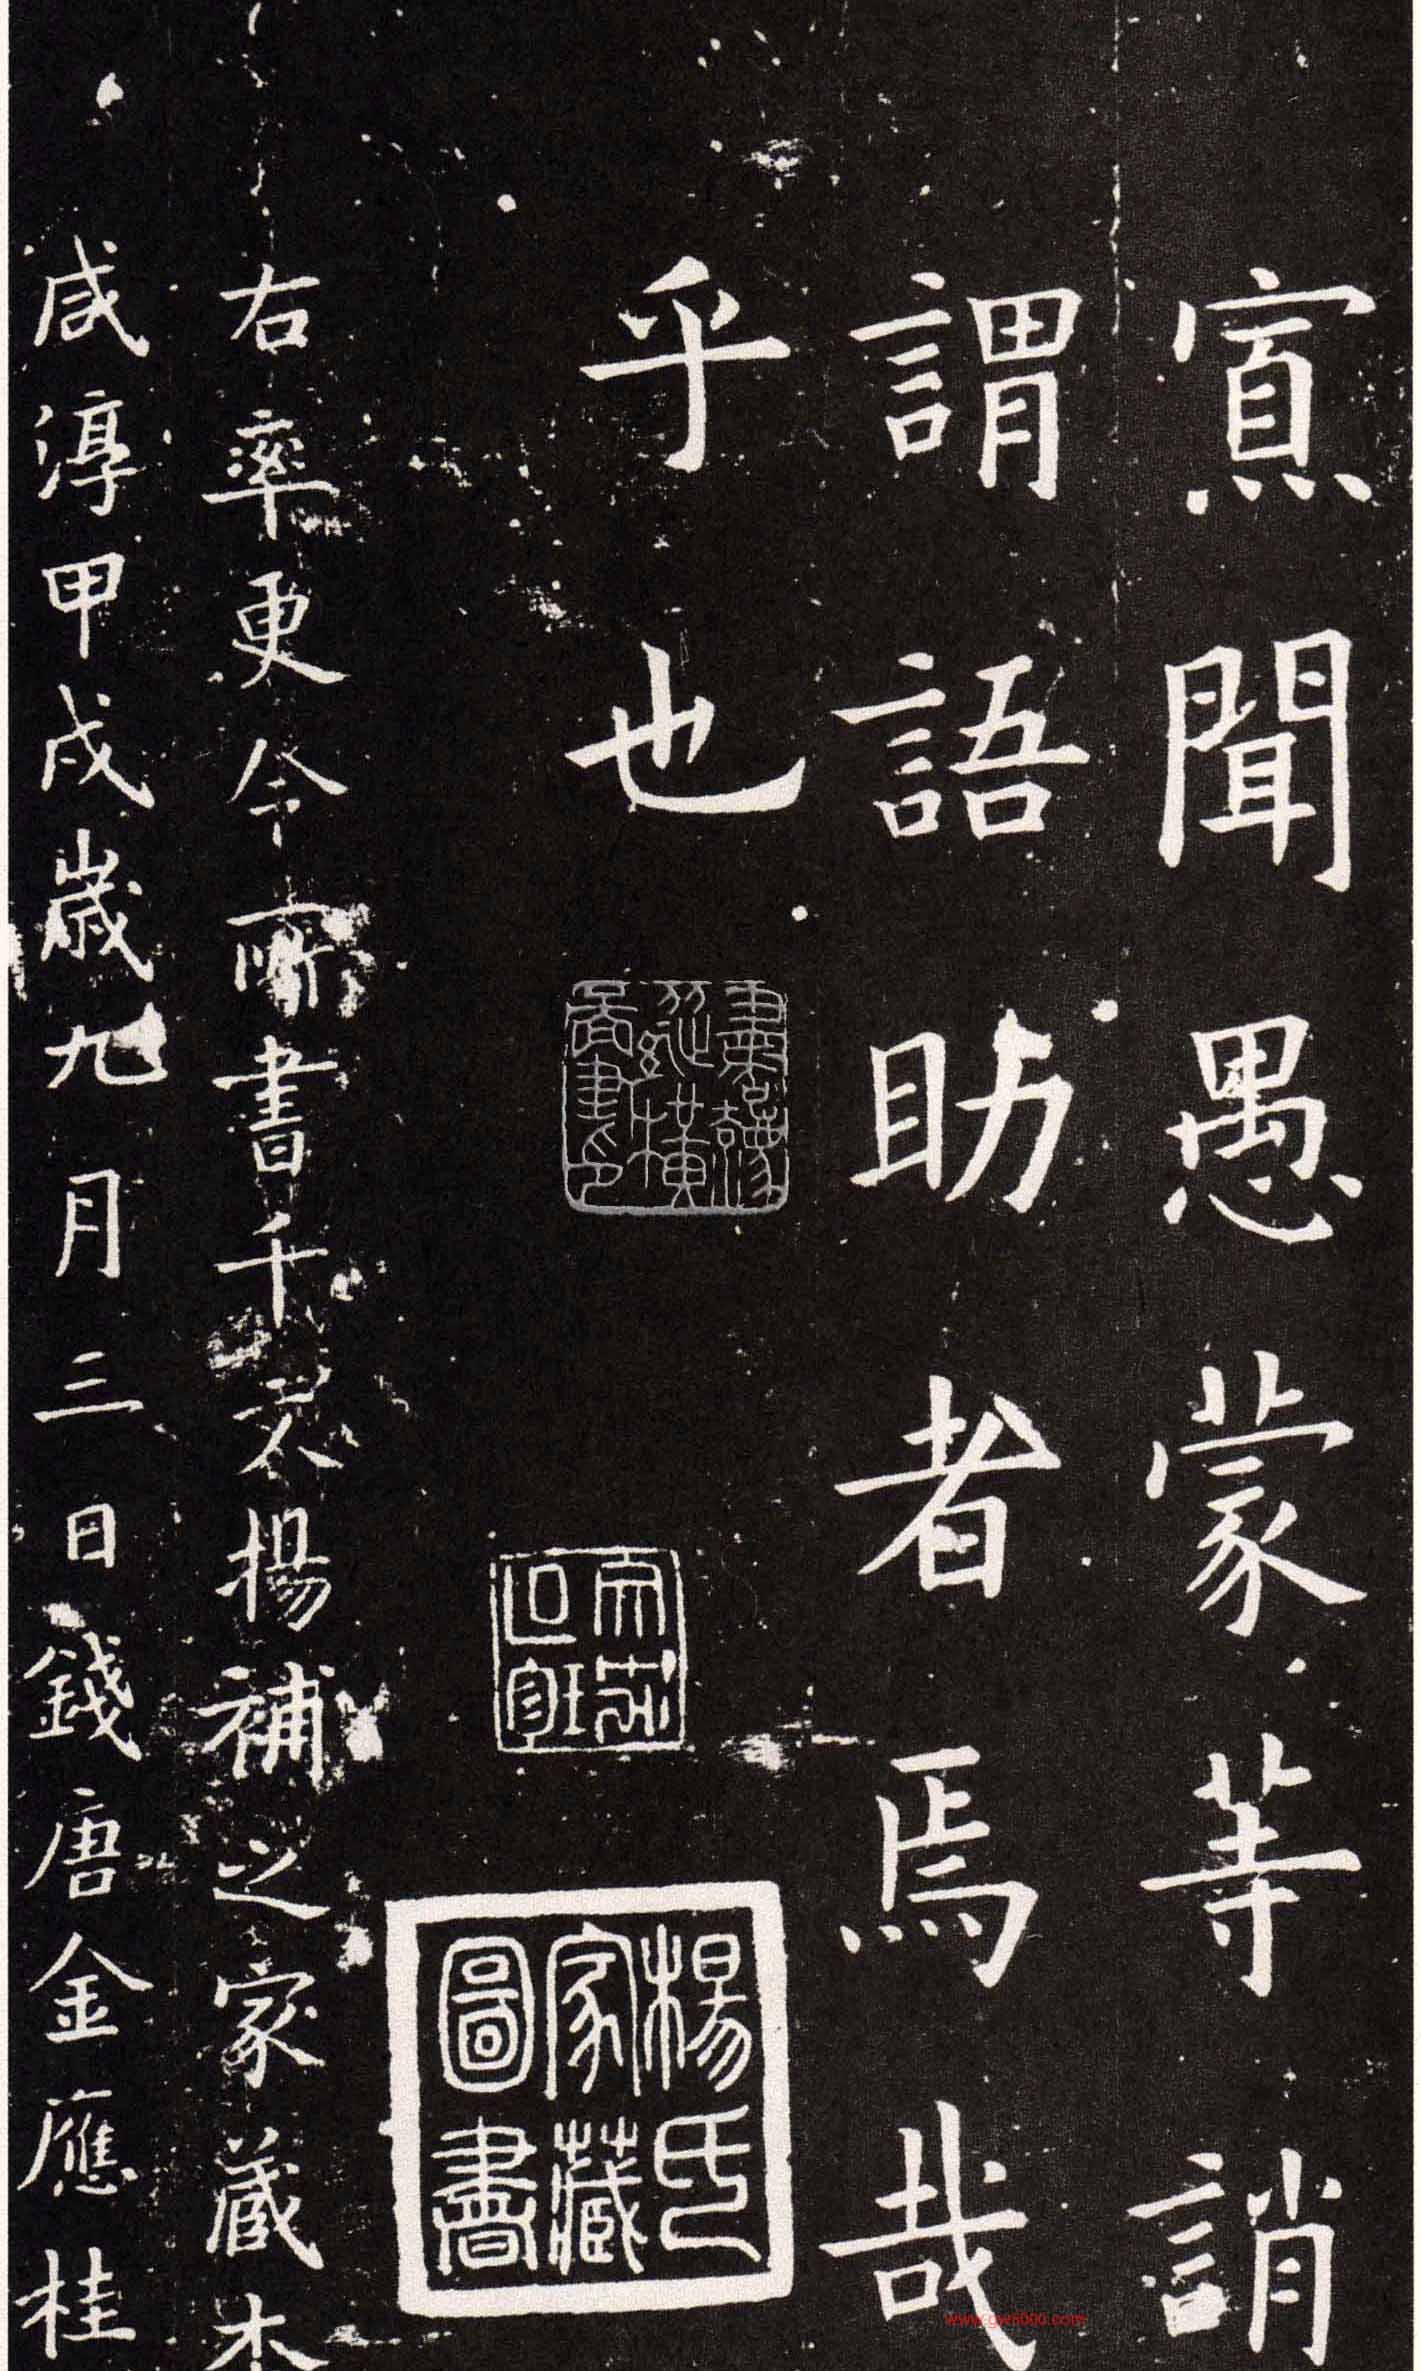 寡聞愚蒙等誚
謂語助者焉哉
乎也
楊氏
家藏
圖書
右率更令所書千文楊補之家藏本
咸淳甲戌歲九月三日錢唐金應桂
www.gw8000.com